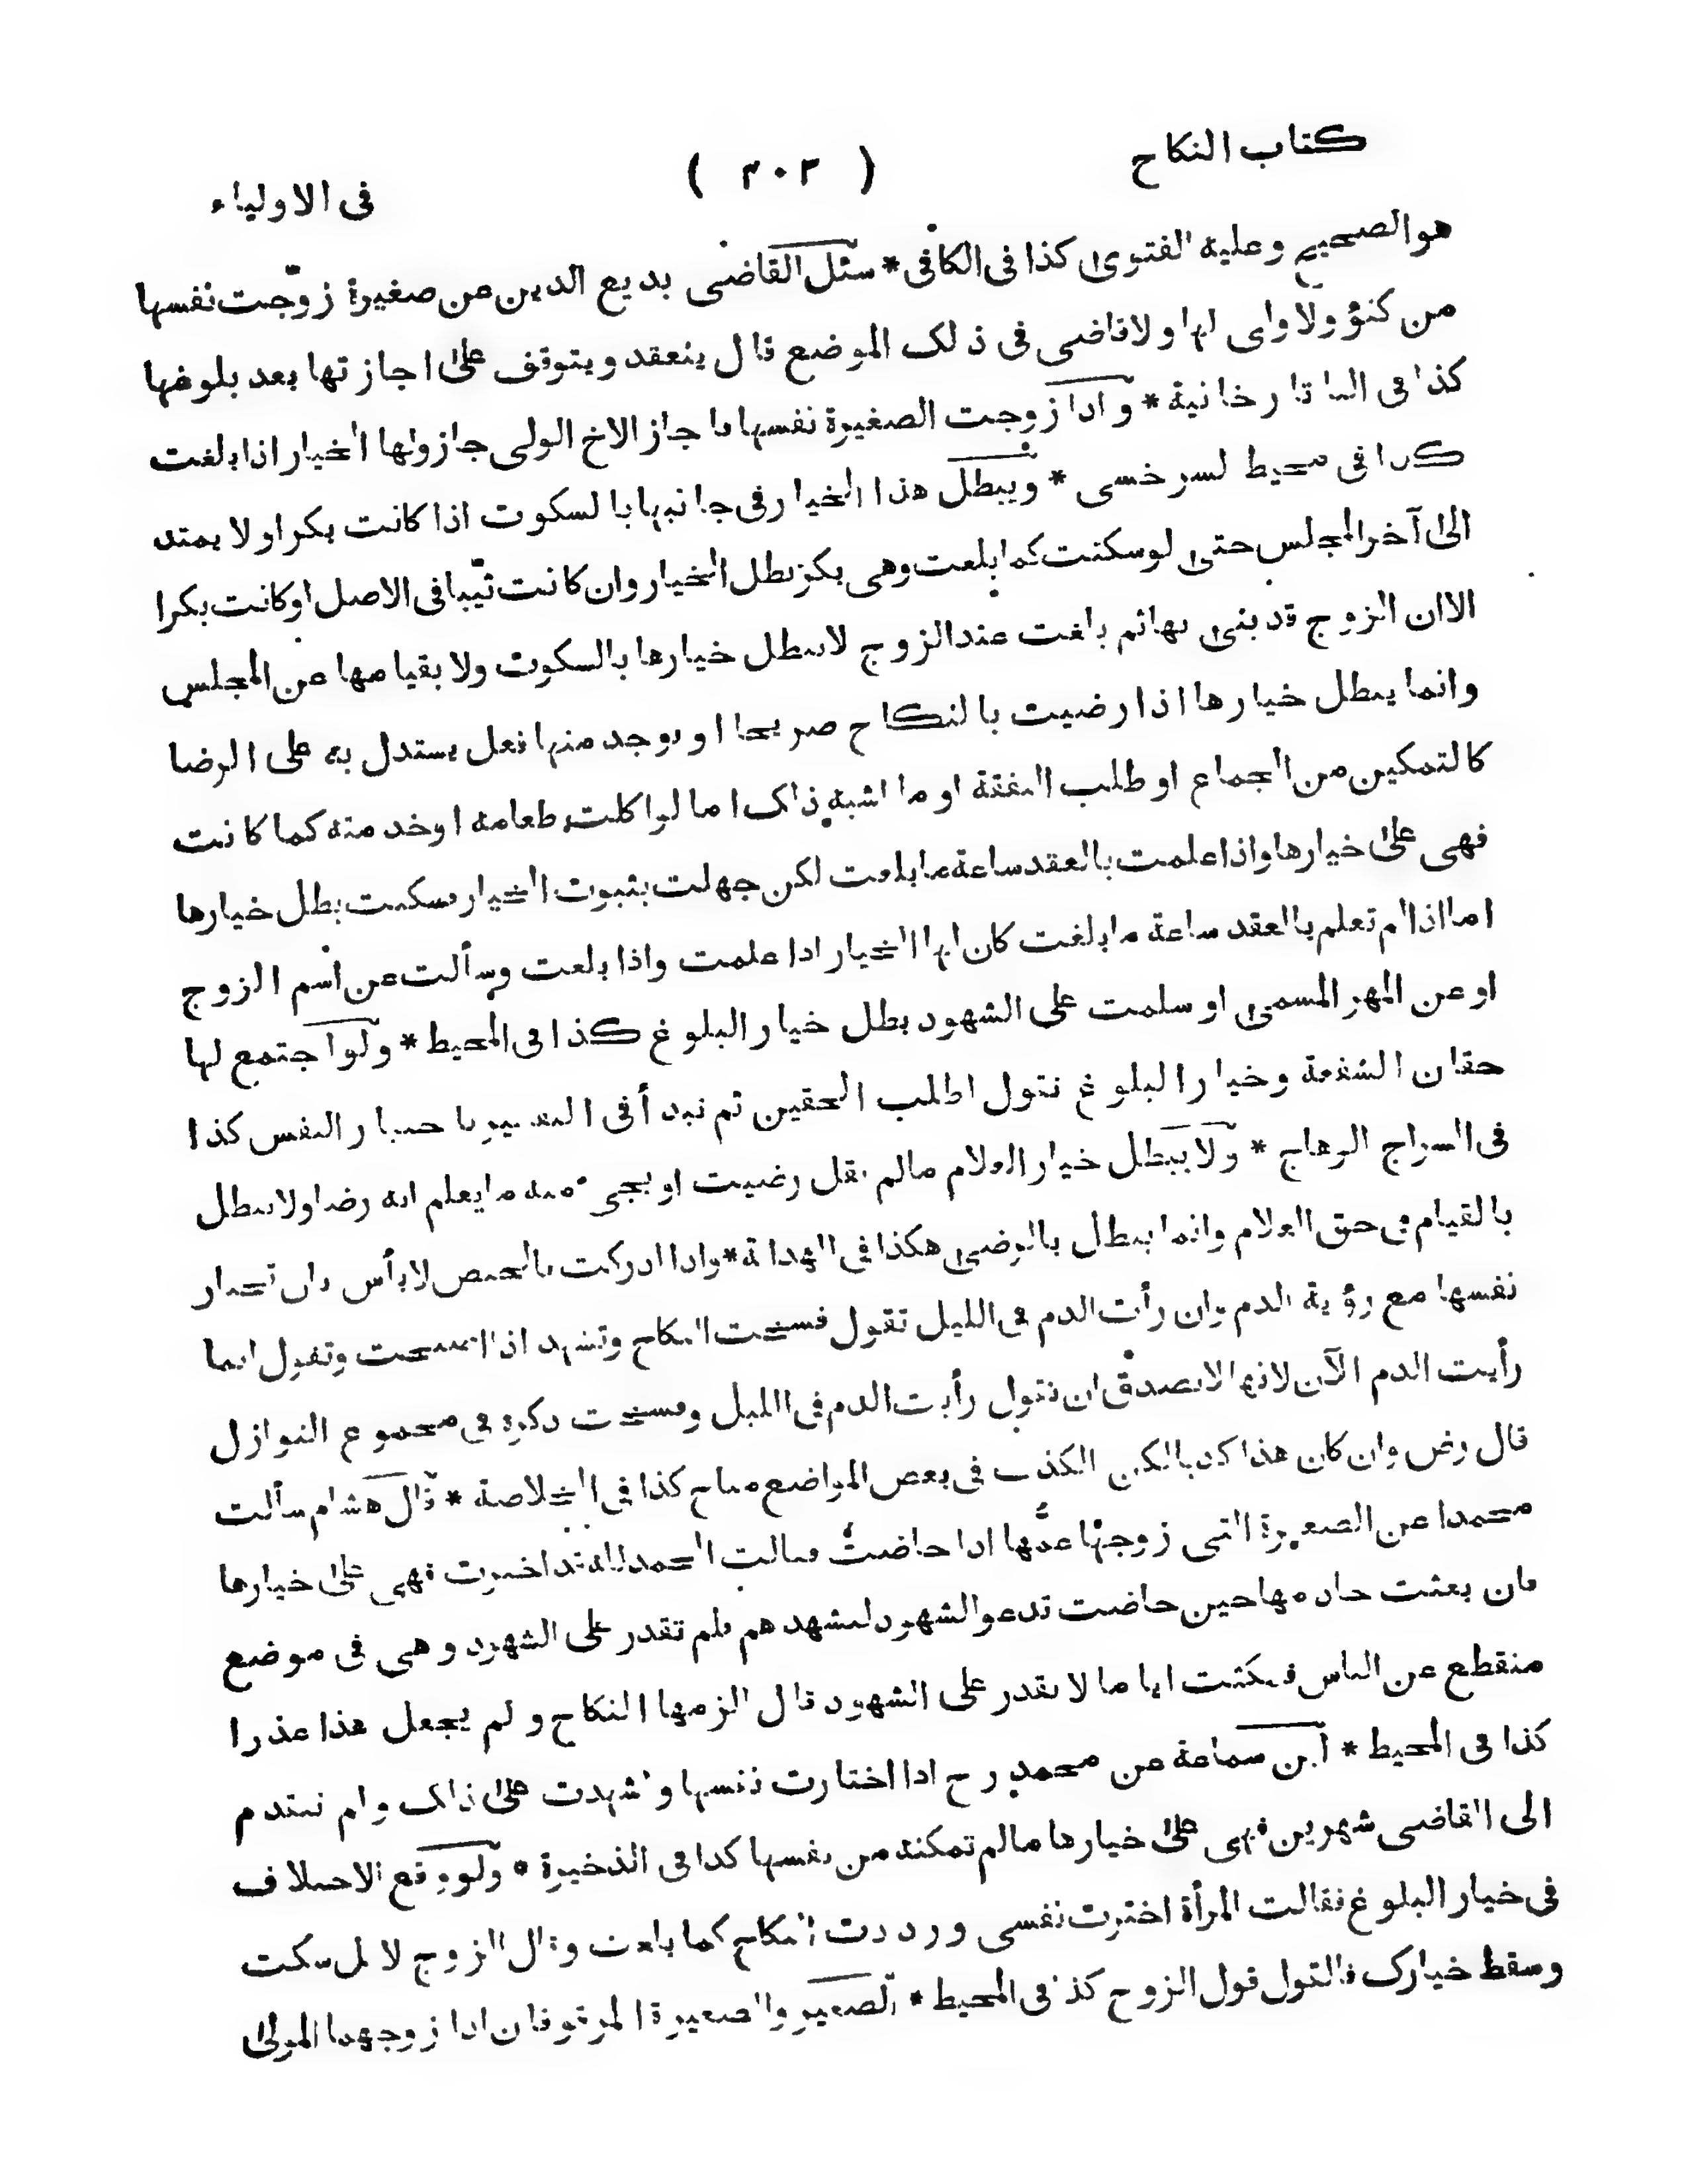 كتاب النكاح
( ٣٠٢ )
فى الاولياء
هو الصحيح وعليه الفتوى كذا فى الكافى * سئل القاضى بديع الدين عن صغيرة زوّجت نفسها
من كفؤ ولا ولى لها ولا قاضى فى ذلك الموضع قال ينعقد ويتوقف على اجازتها بعد بلوغها
كذا فى التاتارخانية * واذا زوجت الصغيرة نفسها فاجاز الاخ الولى جاز ولها الخيار اذا بلغت
كذا فى محيط السرخسى * ويبطل هذا الخيار فى جانبها بالسكوت اذا كانت بكرا ولا يمتد
الى آخر المجلس حتى لو سكتت كما بلغت وهى بكر بطل الخيار وان كانت ثيّبا فى الاصل او كانت بكرا
الا ان الزوج قد بنى بها ثم بلغت عند الزوج لا يبطل خيارها بالسكوت ولا بقيامها عن المجلس
وانما يبطل خيارها اذا رضيت بالنكاح صريحا او يوجد منها فعل يستدل به على الرضا
كالتمكين من الجماع او طلب النفقة او ما اشبه ذلك اما لو اكلت طعامه او خدمته كما كانت
فهى على خيارها واذا علمت بالعقد ساعة ما بلغت لكن جهلت بثبوت الخيار فسكتت بطل خيارها
اما اذا لم تعلم بالعقد ساعة ما بلغت كان لها الخيار اذا علمت واذا بلغت وسألت عن اسم الزوج
او عن المهر المسمى او سلمت على الشهود بطل خيار البلوغ كذا فى المحيط * ولو اجتمع لها
حقان الشفعة وخيار البلوغ تقول اطلب الحقين ثم تبدأ فى التفسير باختيار النفس كذا
فى السراج الوهاج * ولا يبطل خيار الغلام مالم يقل رضيت او يجى منه ما يعلم انه رضا ولا يبطل
بالقيام فى حق الغلام وانما يبطل بالرضى هكذا فى الهداية * واذا ادركت بالحيض لا بأس بان تختار
نفسها مع رؤية الدم وان رأت الدم فى الليل تقول فسخت النكاح وتشهد اذا اصبحت وتقول انما
رأيت الدم الآن لانها لا تصدق ان تقول رأيت الدم فى الليل وفسخت ذكره فى مجموع النوازل
قال رض وان كان هذا كذبا لكن الكذب فى بعض المواضع مباح كذا فى الخلاصة * قال هشام سألت
محمدا عن الصغيرة التى زوجها عمّها اذا حاضت فقالت الحمد لله قد اخترت فهى على خيارها
فان بعثت خادمها حين حاضت تدعو الشهود لتشهدهم فلم تقدر على الشهود وهى فى موضع
منقطع عن الناس فمكثت اياما لا تقدر على الشهود قال الزمها النكاح ولم يجعل هذا عذرا
كذا فى المحيط * ابن سماعة عن محمد رح اذا اختارت نفسها واشهدت على ذلك ولم تتقدم
الى القاضى شهرين فهى على خيارها مالم تمكنه من نفسها كذا فى الذخيرة * ولو وقع الاختلاف
فى خيار البلوغ فقالت المرأة اخترت نفسى ورددت النكاح كما بلغت وقال الزوج لا بل سكت
وسقط خيارك فالقول قول الزوج كذا فى المحيط * الصغير والصغيرة المرقوقان اذا زوجهما المولى